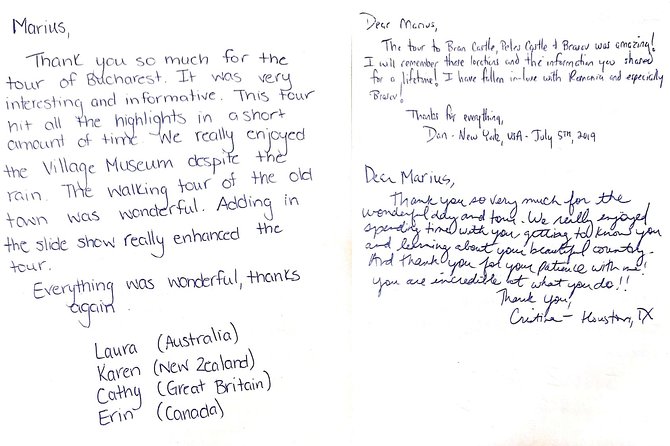 Marius,
Thank you so much for the
tour of Bucharest. It was very
interesting and informative. This tour
hit all the highlights in a short
amount of time. We really enjoyed
the Village Museum despite the
rain. The walking tour of the old
town was wonderful. Adding in
the slide show really enhanced the
tour.
Everything was wonderful, thanks
again.
Laura (Australia)
Karen (New Zealand)
Cathy (Great Britain)
Erin (Canada)
Dear Marius,
The tour to Bran Castle, Peles Castle + Brasov was amazing!
I will remember these locations and the information you shared
for a lifetime! I have fallen in-love with Romania and especially
Brasov!
Thanks for everything,
Dan - New York, USA - July 5th, 2019
Dear Marius,
Thank you so very much for the
wonderful day and tour. We really enjoyed
spending time with you getting to know you
and learning about your beautiful country.
And thank you for your patience with me!
You are incredible at what you do!!
Thank you!
Cristina - Houston, TX